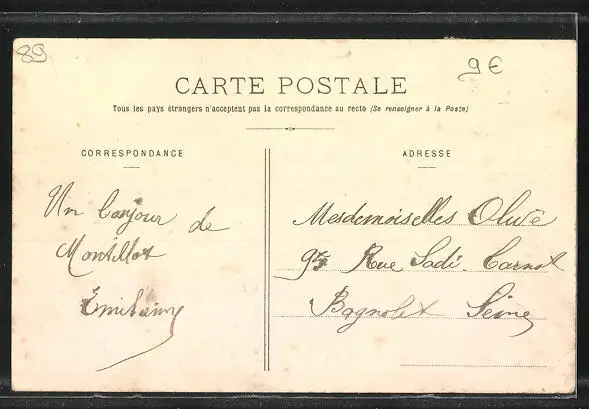 89
9€
CARTE POSTALE
Tous les pays étrangers n'acceptent pas la correspondance au recto (Se renseigner à la Poste)
CORRESPONDANCE
Un bonjour de
Montillot
ADRESSE
Mesdemoiselles Olive
95 Rue Sadi Carnot
Bagnolet Seine